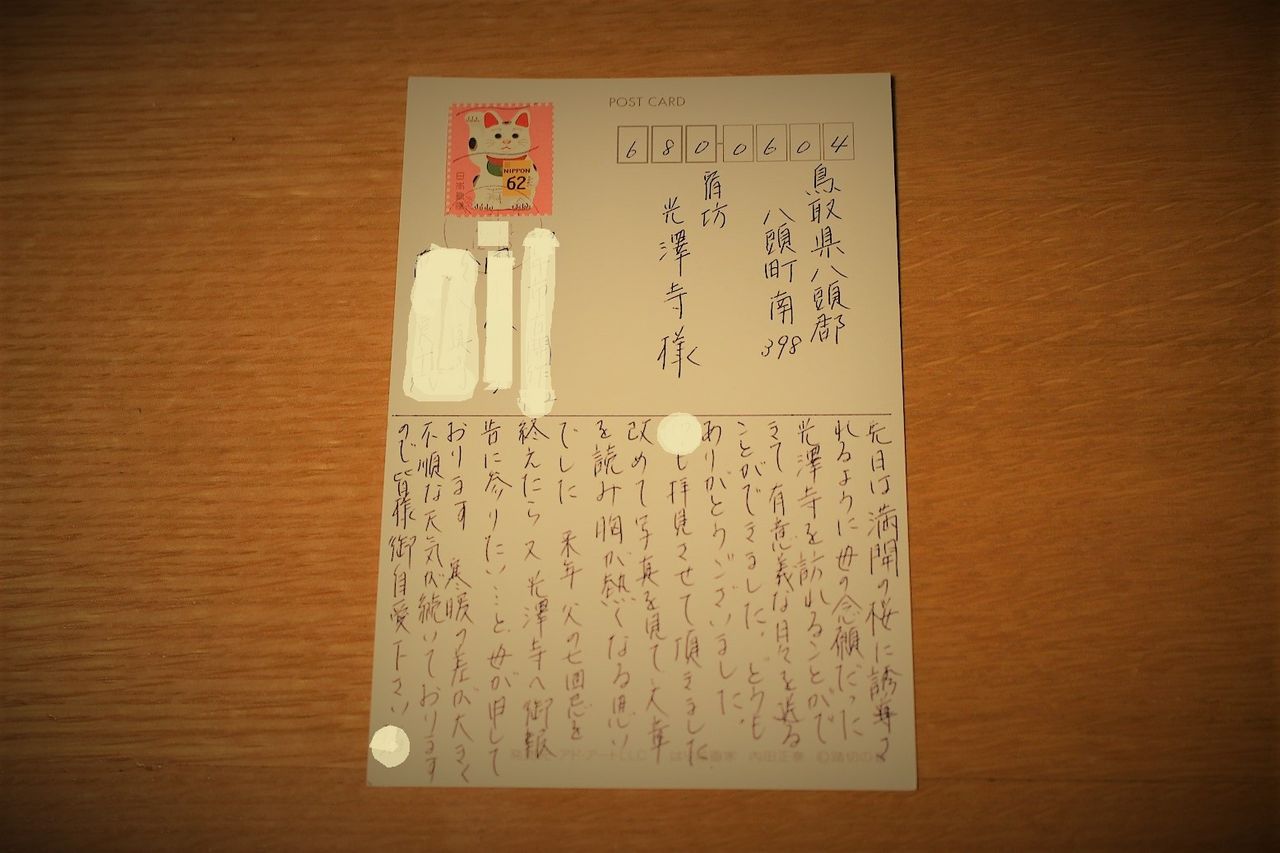 POST CARD
680-0604
鳥取県八頭郡
八頭町南398
宿坊
光澤寺様
NIPPON
62
日本郵便
先日は満開の桜に誘導さ
れるように母の念願だった
光澤寺を訪れることがで
きて有意義な日々を送る
ことができました。どうも
ありがとうございました。
も拝見させて頂きました
改めて写真を見て文章
を読み胸が熱くなる思い
でした 来年父の七回忌を
終えたら又光澤寺へ御報
告に参りたい…と母が申して
おります 寒暖の差が大きく
不順な天気が続いております
ので皆様御自愛下さい
アド・アートLLC 内田正泰